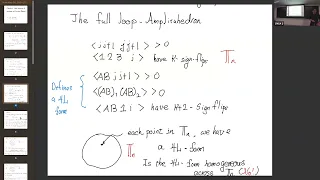 The full loop-Amplituhedron
<i i+1 j j+1> >0
<1 2 3 i> have k-sign flips
𝕋n
Defines a 4L form
<AB j j+1> >0
<(AB)i (AB)j> >0
<AB 1 i> have k+2-Sign flips
each point in 𝕋n, we have
a 4L-form
𝕋n
Is the 4L-form homogeneous
across 𝕋n